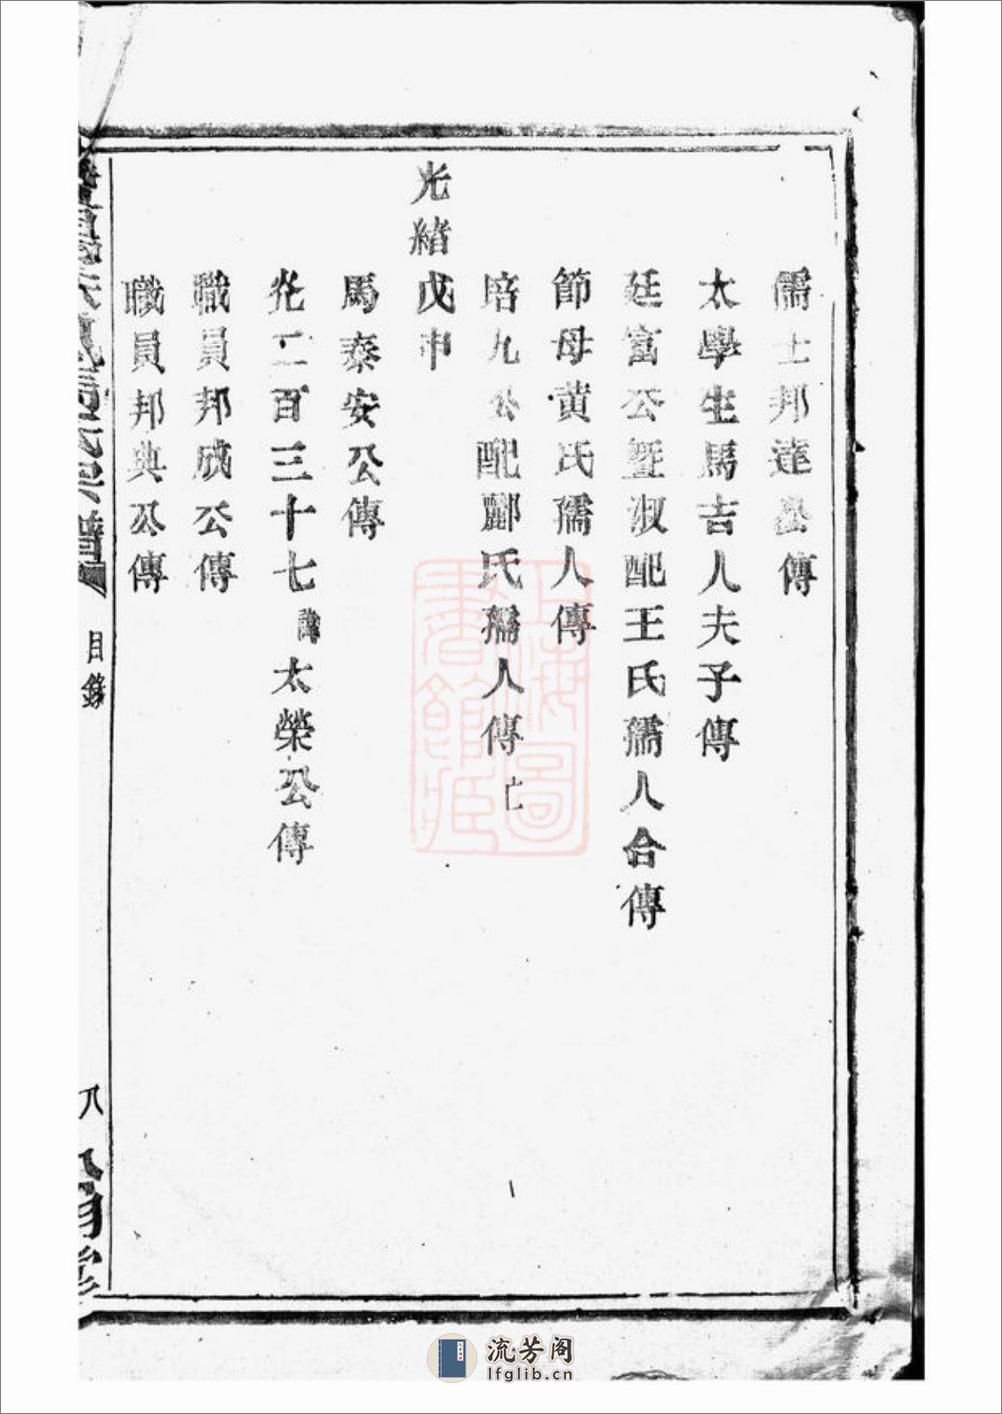 儒士邦達公傳
太學生馬吉人夫子傳
廷富公暨淑配王氏孺人合傳
節母黄氏孺人傳
培九公配酈氏孺人傳 亡
光緒戊申
馬泰安公傳
光二百三十七諱太榮公傳
職員邦成公傳
職員邦典公傳
馬氏宗譜
目錄
八
上海圖書館藏
流芳阁
lfglib.cn